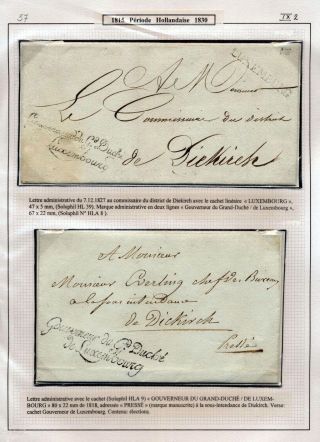 57
1815 Période Hollandaise 1830
IX 2
LUXEMBOURG
A Monsieur
Le Commissaire du district
de Diekirch
Gouverneur du Gd Duché
de Luxembourg
Lettre administrative du 7.12.1827 au commissaire du district de Diekirch avec le cachet linéaire « LUXEMBOURG »,
47 x 5 mm, (Soluphil HL 39). Marque administrative en deux lignes « Gouverneur du Grand-Duché / de Luxembourg »,
67 x 22 mm, (Soluphil N° HLA 8 ).
A Monsieur
Monsieur Berling chef de Bureau
à la sous intendance
de Diekirch
Pressée
Gouverneur du Gd Duché
de Luxembourg
Lettre administrative avec le cachet (Soluphil HLA 9) « GOUVERNEUR DU GRAND-DUCHÉ / DE LUXEM-
BOURG » 80 x 22 mm de 1818, adressée « PRESSÉ » (marque manuscrite) à la sous-intendance de Diekirch. Verso:
cachet Gouverneur de Luxembourg. Contenu: élections.